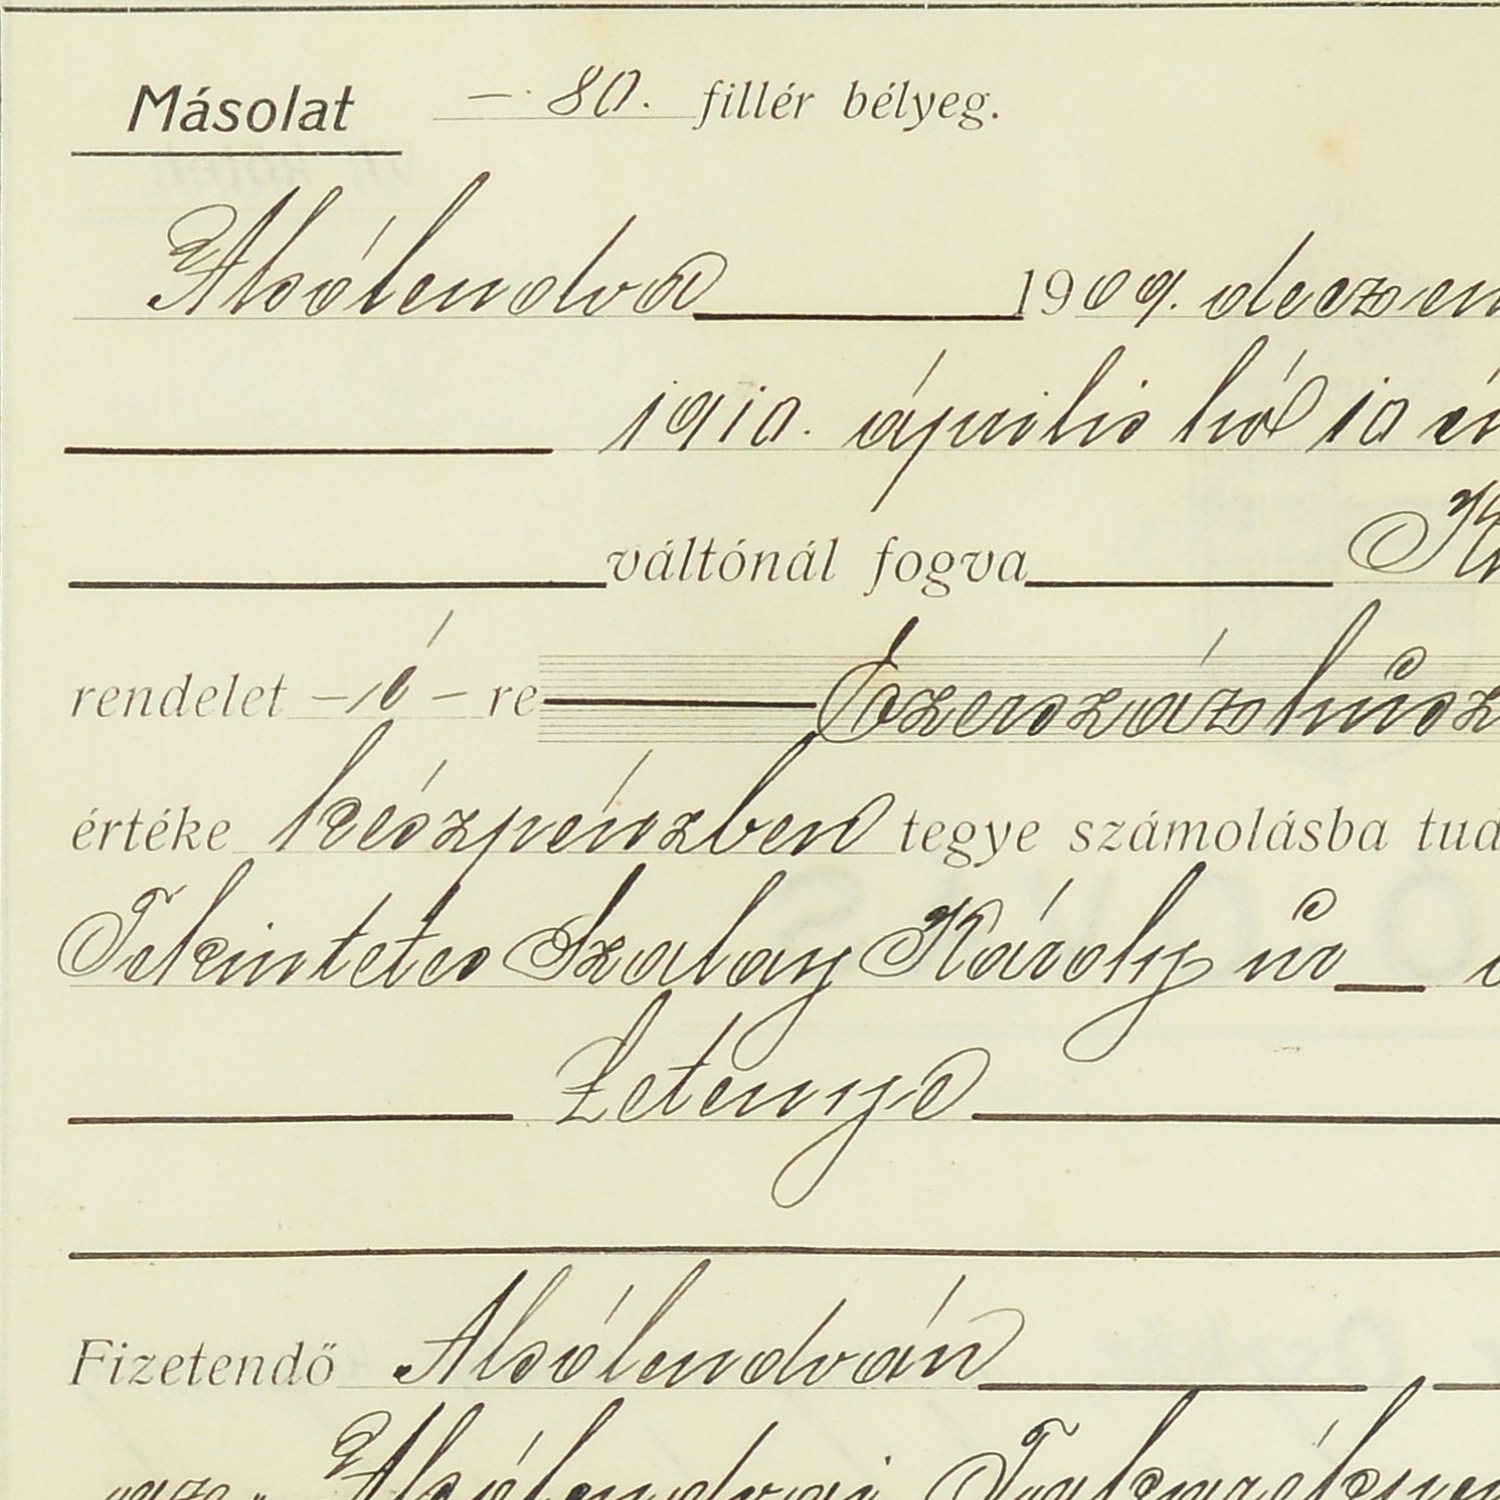 Másolat — 80. fillér bélyeg.
Alsólendva 1909. deczem
1910. április hó 10 én
váltónál fogva
rendelet –ó– re Ezerszázhúsz
értéke készpénzben tegye számolásba tud
Tekintetes Szalay Károly úr
Letenye
Fizetendő Alsólendván
az Alsólendvai Takarék